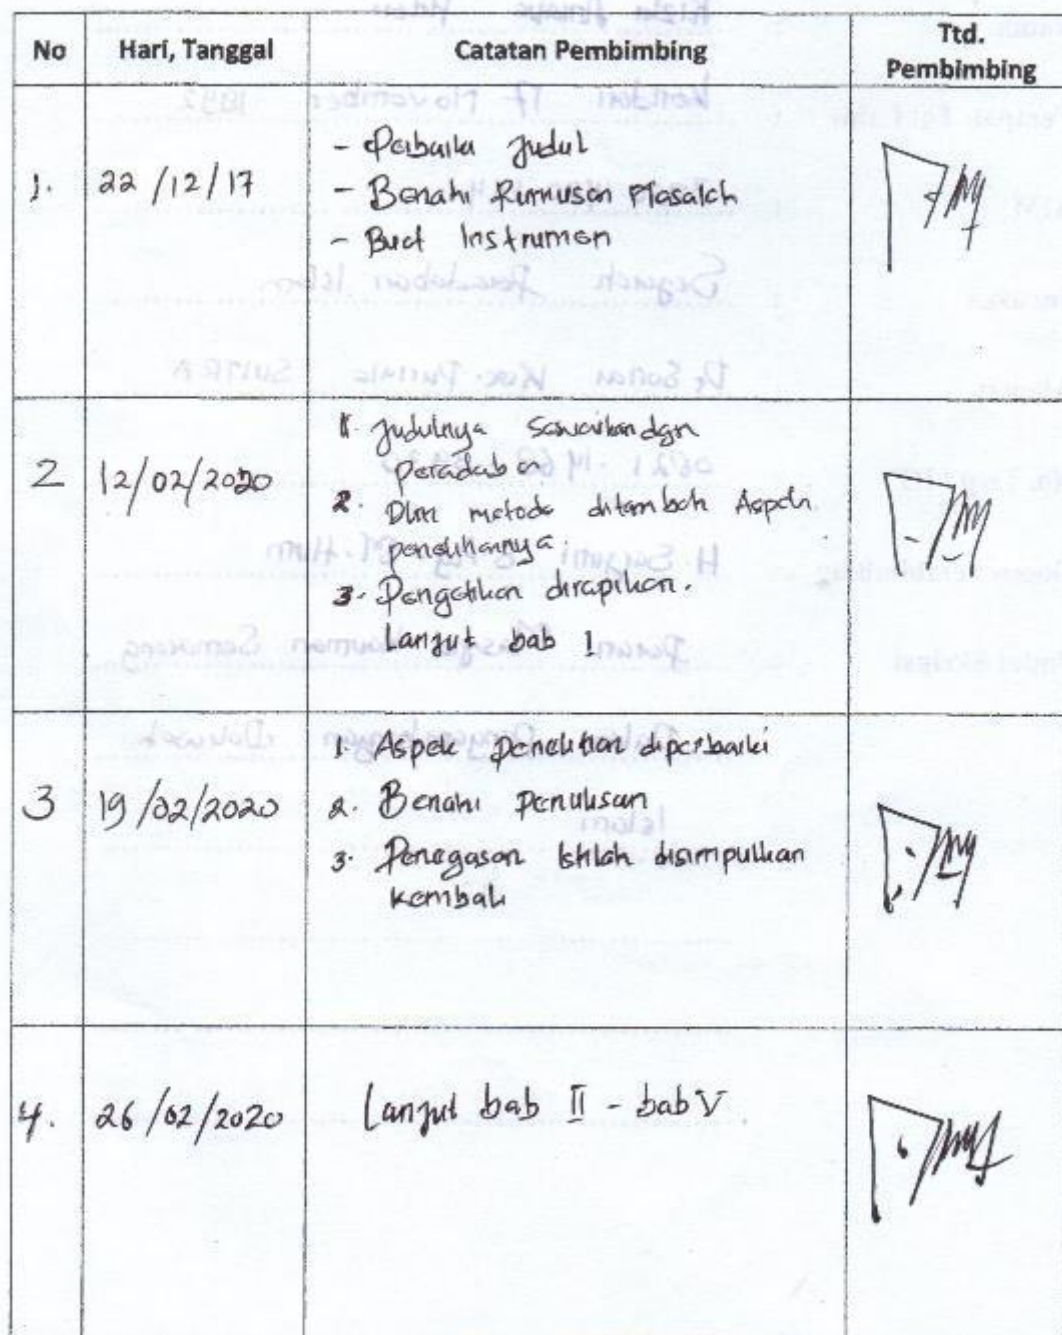 No Hari, Tanggal Catatan Pembimbing Ttd. Pembimbing
1. 22/12/17
- Perbaiki judul
- Benahi Rumusan Masalah
- Buat Instrumen
2 12/02/2020
1. Judulnya Sesuaikan dgn
peradaban
2. Dlm metode ditambah Aspek
penelitiannya.
3. Pengetikan dirapikan.
Lanjut bab 1
3 19/02/2020
1. Aspek penelitian diperbaiki
2. Benahi penulisan
3. Penegasan Istilah disimpulkan
kembali
4. 26/02/2020 Lanjut bab II - bab V